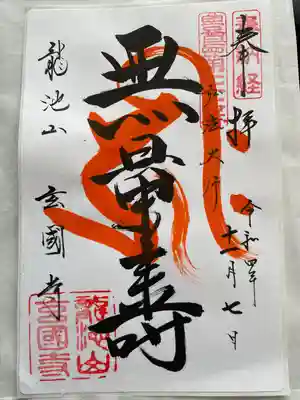 奉拝
令和四年
十一月七日
弘法大师
無量壽
龍池山
玄國寺
龍池山
玄國寺